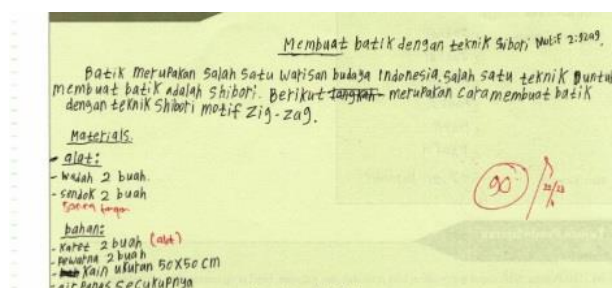 Membuat batik dengan teknik Sibori Motif Zigzag.
Batik merupakan salah satu warisan budaya Indonesia. Salah satu teknik untuk
membuat batik adalah shibori. Berikut merupakan cara membuat batik
dengan teknik shibori motif zig-zag.
Materials.
- alat:
- wadah 2 buah.
- sendok 2 buah
90
bahan:
- karet 2 buah (alat)
- pewarna 2 buah
- Kain ukuran 50x50 cm
- air panas secukupnya